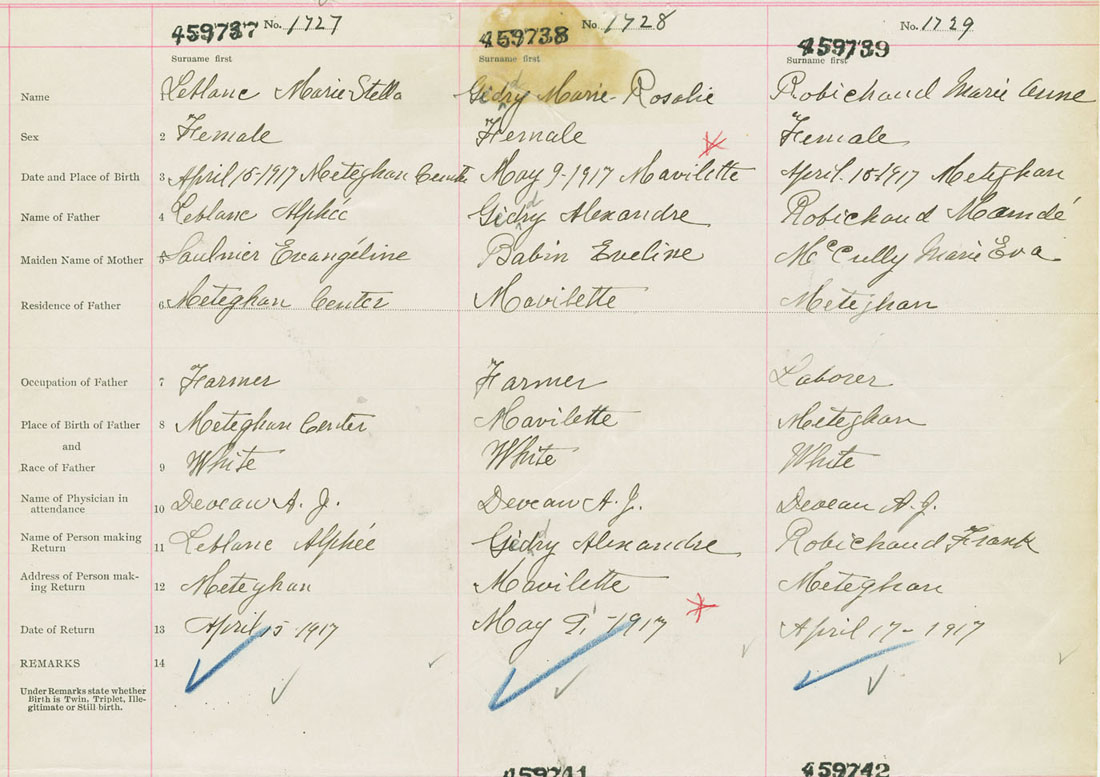 459737 No. 1727 459738 No. 1728 459739 No. 1729
Surname first Surname first Surname first
Name 1 Leblanc Marie Stella Gidry Marie-Rosalie Robichaud Marie Anne
Sex 2 Female Female Female
Date and Place of Birth 3 April 15-1917 Meteghan Center May 9-1917 Mavilette April 15-1917 Meteghan
Name of Father 4 Leblanc Alphée Gidry Alexandre Robichaud Mamdé
Maiden Name of Mother 5 Saulnier Evangéline Babin Eveline McCully Marie Eva
Residence of Father 6 Meteghan Center Mavilette Meteghan
Occupation of Father 7 Farmer Farmer Laborer
Place of Birth of Father 8 Meteghan Center Mavilette Meteghan
and
Race of Father 9 White White White
Name of Physician in
attendance 10 Deveau A. J. Deveau A. J. Deveau A. J.
Name of Person making
Return 11 Leblanc Alphée Gidry Alexandre Robichaud Frank
Address of Person mak-
ing Return 12 Meteghan Mavilette Meteghan
Date of Return 13 April 15-1917 May 9-1917 April 17-1917
REMARKS 14
Under Remarks state whether
Birth is Twin, Triplet, Ille-
gitimate or Still birth.
459741 459742